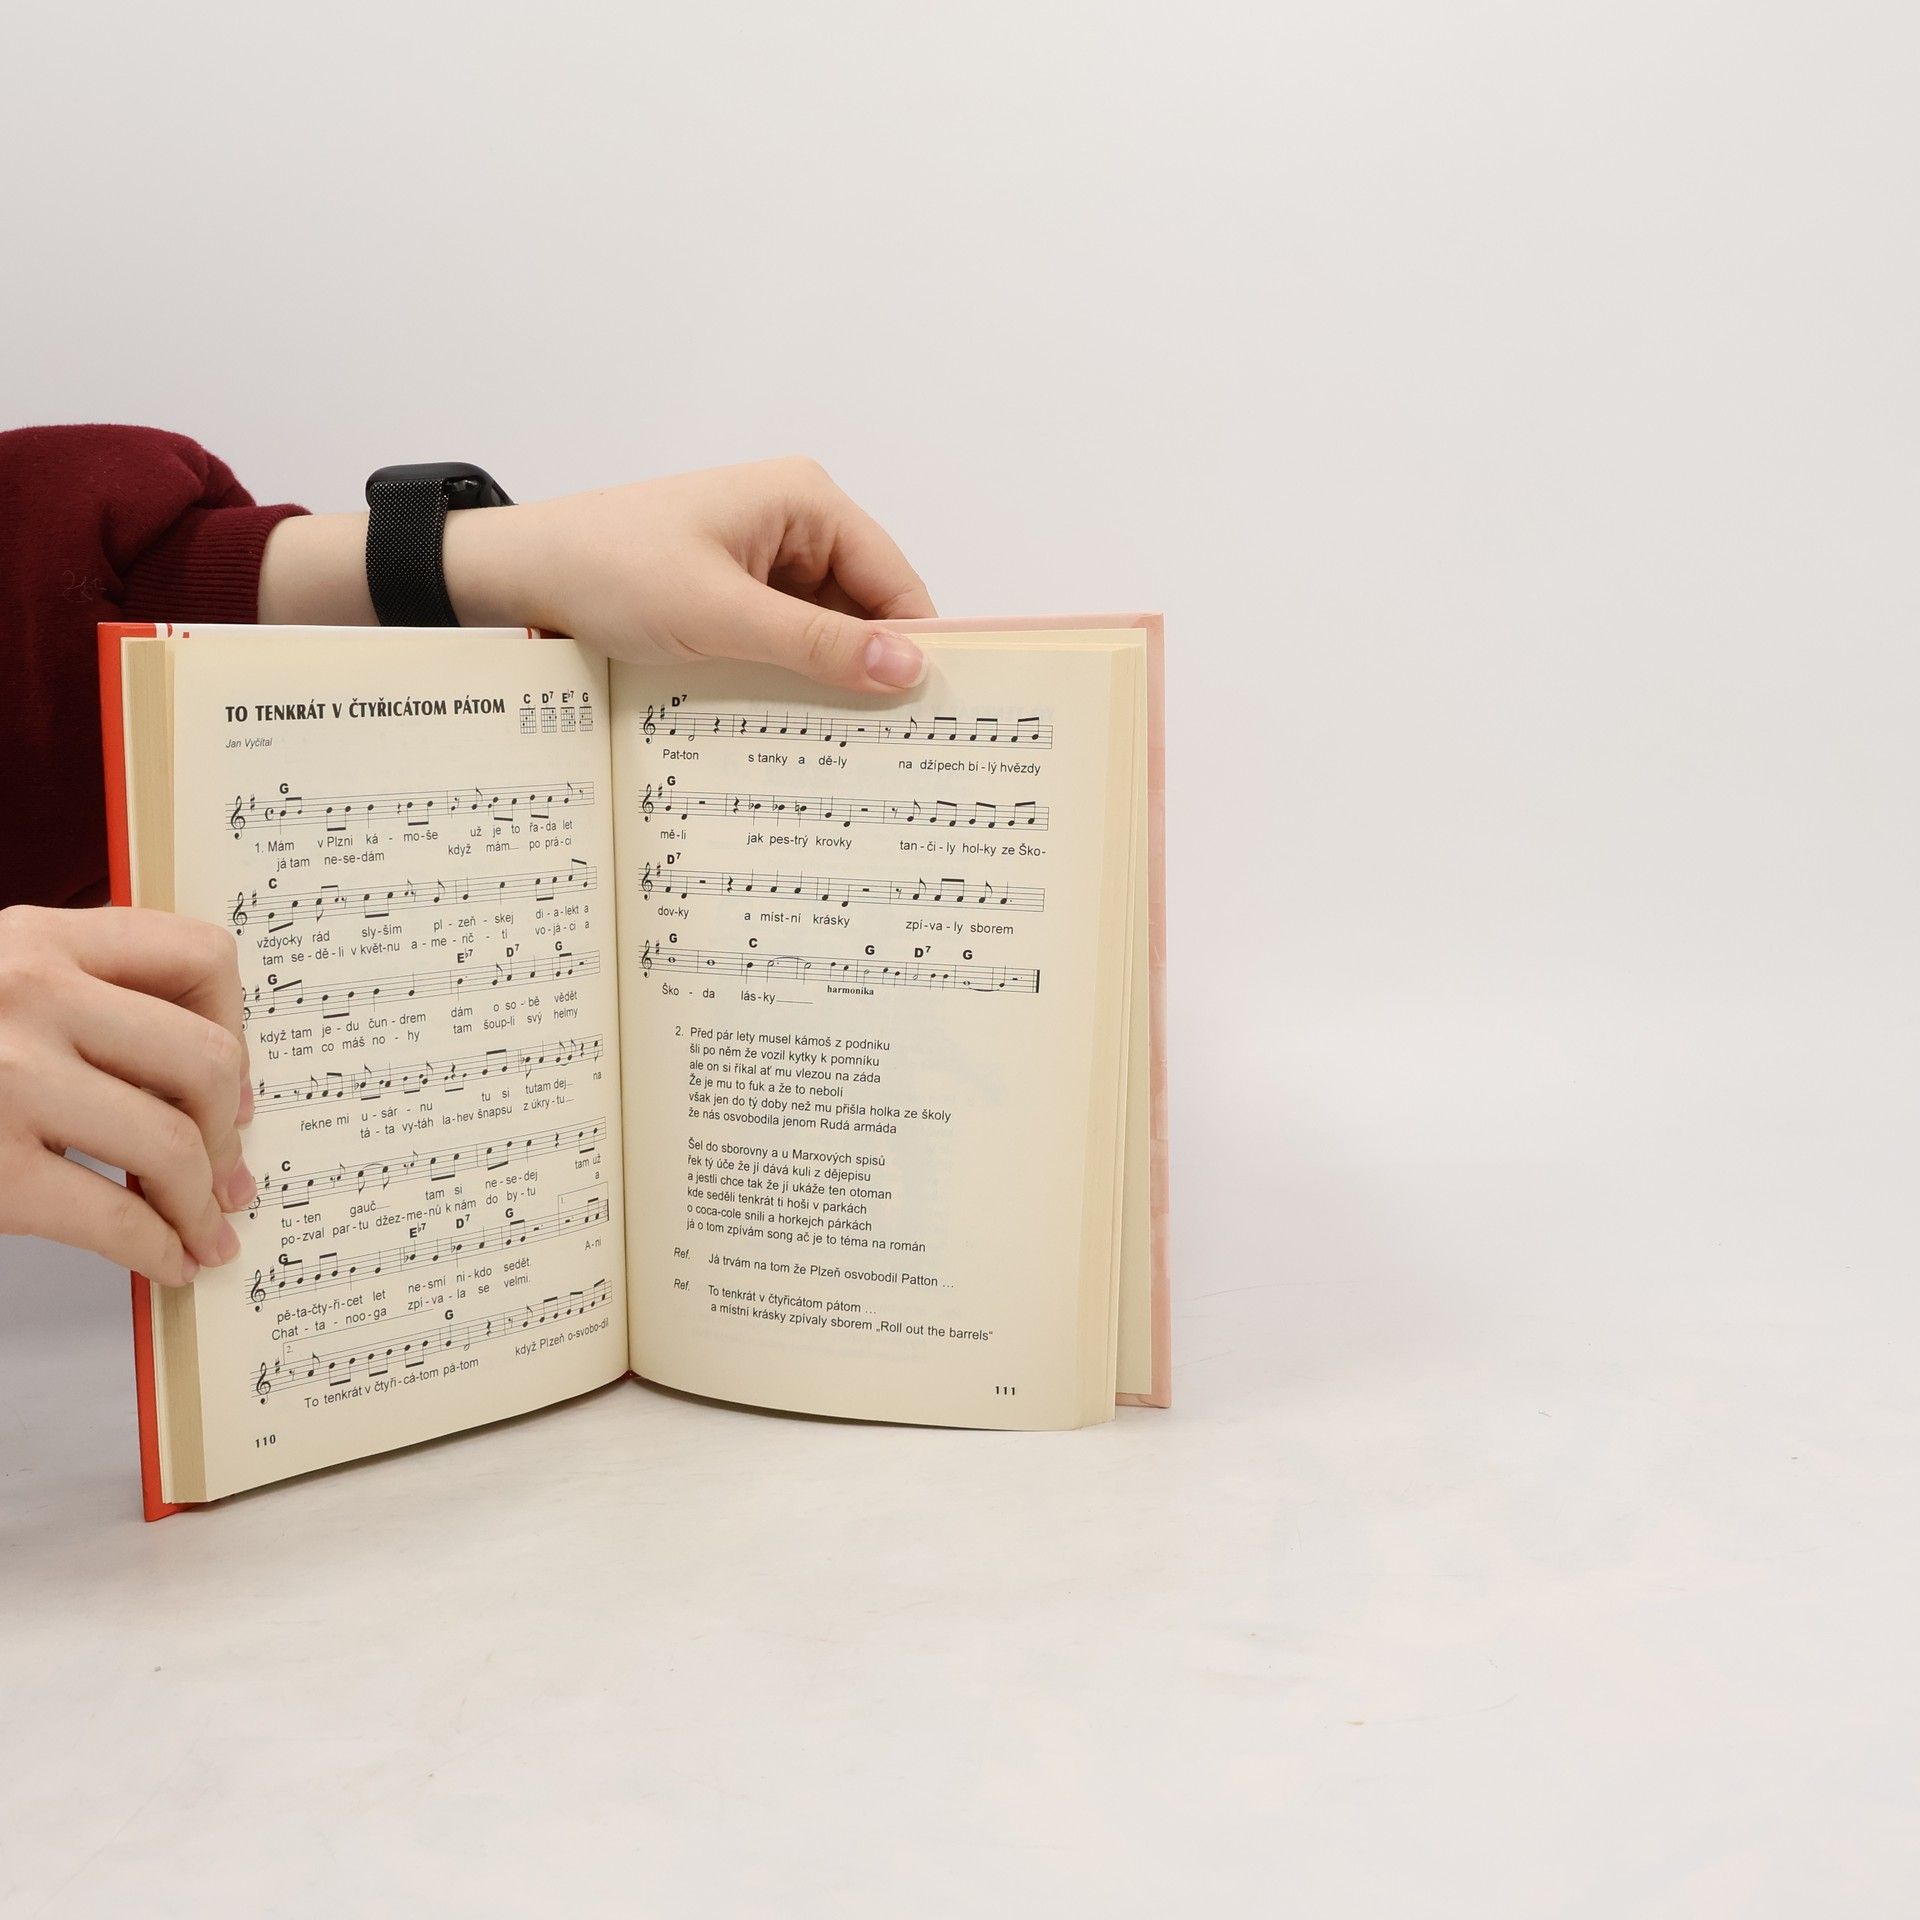 TO TENKRÁT V ČTYŘICÁTOM PÁTOM
C D7 E♭7 G
Jan Vyčítal
G
1. Mám v Plzni ká - mo-še už je to řa-da let
já tam ne-se-dám když mám po prá-ci
C
vždycky rád sly-ším pl - zeň - skej di-a-lekt a
tam se-dě-li v květ-nu a-me-rič-tí vo-já-ci a
G E♭7 D7 G
když tam je-du čun-drem dám o so-bě vědět
tu-tam co máš no-hy tam šoup-li svý helmy
řekne mi u-sár-nu tu si tutam dej na
tá-ta vy-táh la-hev šnapsu z úkry-tu
C
tu-ten gauč tam si ne-se-dej tam už
po-zval par-tu džez-me-nů k nám do by-tu a
G E♭7 D7 G 1.
pě-ta-čty-ři-cet let ne-smí ni-kdo sedět. A-ni
Chat-ta-noo-ga zpí-va-la se velmi.
2. G
To tenkrát v čtyři-cá-tom pá-tom když Plzeň o-svobo-dil
110
D7
Pat-ton s tanky a dě-ly na džípech bí-lý hvězdy
G
mě-li jak pes-trý krovky tan-či-ly hol-ky ze Ško-
D7
dov-ky a míst-ní krásky zpí-va-ly sborem
G C G D7 G
Ško - da lás-ky harmonika
2. Před pár lety musel kámoš z podniku
šli po něm že vozil kytky k pomníku
ale on si říkal ať mu vlezou na záda
Že je mu to fuk a že to nebolí
však jen do tý doby než mu přišla holka ze školy
že nás osvobodila jenom Rudá armáda
Šel do sborovny a u Marxových spisů
řek tý úče že jí dává kuli z dějepisu
a jestli chce tak že jí ukáže ten otoman
kde seděli tenkrát ti hoši v parkách
o coca-cole snili a horkejch párkách
já o tom zpívám song ač je to téma na román
Ref. Já trvám na tom že Plzeň osvobodil Patton ...
Ref. To tenkrát v čtyřicátom pátom ...
a místní krásky zpívaly sborem „Roll out the barrels“
111